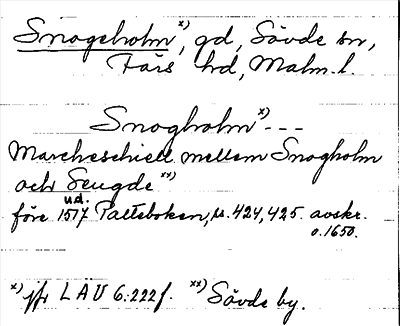 Snogeholm x), gd, Sövde sn,
Färs hd, Malm. l.
Snogholm x) ---
Marcheschiell mellem Snogholm
och Seugde xx)
u.d.
före 1517 Palteboken, s. 424, 425. avskr.
o. 1650.
x) jfr LÄU 6:222 f. xx) Sövde by.